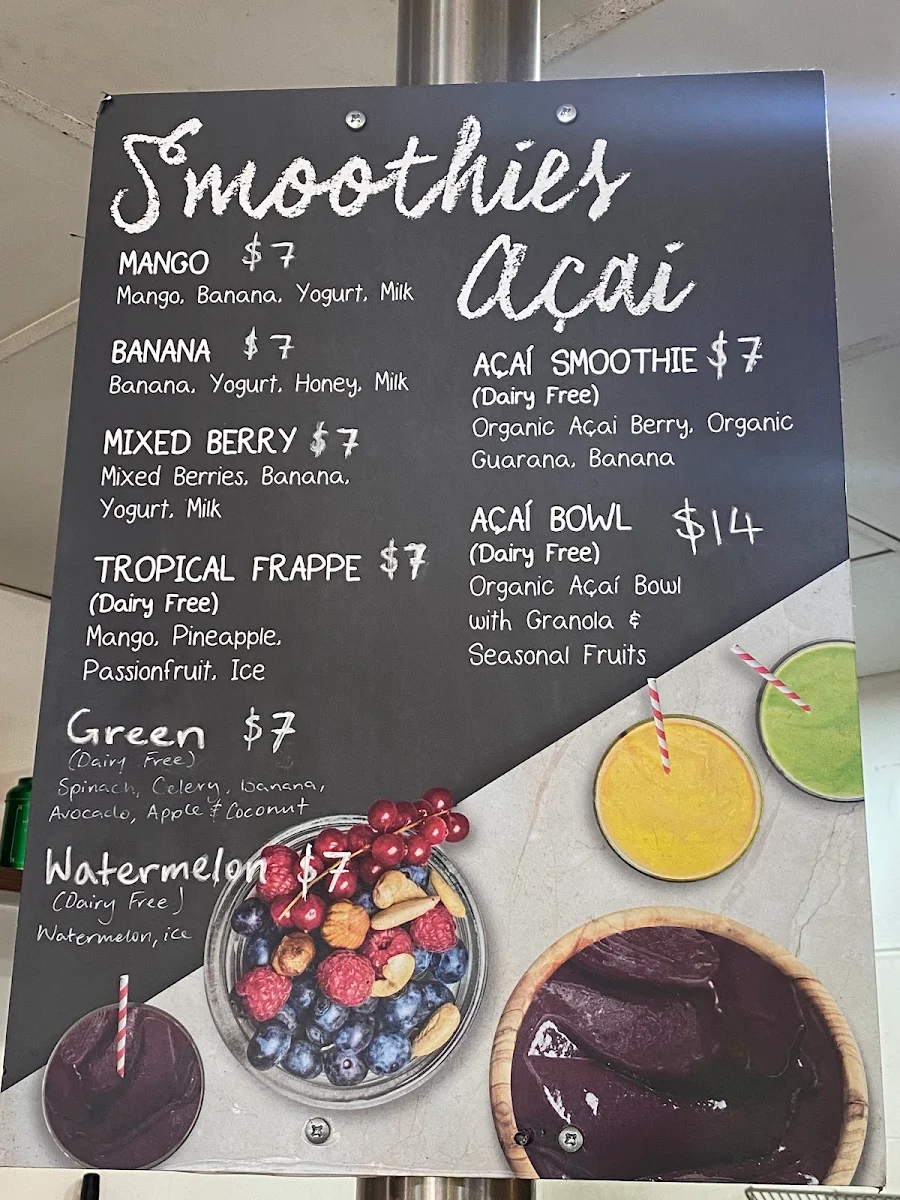 Smoothies
MANGO $7
Mango, Banana, Yogurt, Milk
BANANA $7
Banana, Yogurt, Honey, Milk
MIXED BERRY $7
Mixed Berries, Banana,
Yogurt, Milk
TROPICAL FRAPPE $7
(Dairy Free)
Mango, Pineapple,
Passionfruit, Ice
Green $7
(Dairy Free)
Spinach, Celery, banana,
Avocado, Apple & Coconut
Watermelon $7
(Dairy Free)
Watermelon, ice
Açaí
AÇAÍ SMOOTHIE $7
(Dairy Free)
Organic Açaí Berry, Organic
Guarana, Banana
AÇAÍ BOWL $14
(Dairy Free)
Organic Açaí Bowl
with Granola &
Seasonal Fruits